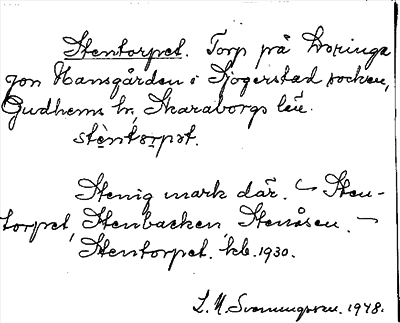 Stentorpet. Torp på Kvoringa
gon Hansgården i Sjogerstad socken,
Gudhems hr, Skaraborgs län.
stèntorpət.
Stenig mark där. ‿ Sten-
torpet, Stenbacken, Stenåsen. ‿
Stentorpet. kb. 1930.
L. N. Svenungsson. 1948.